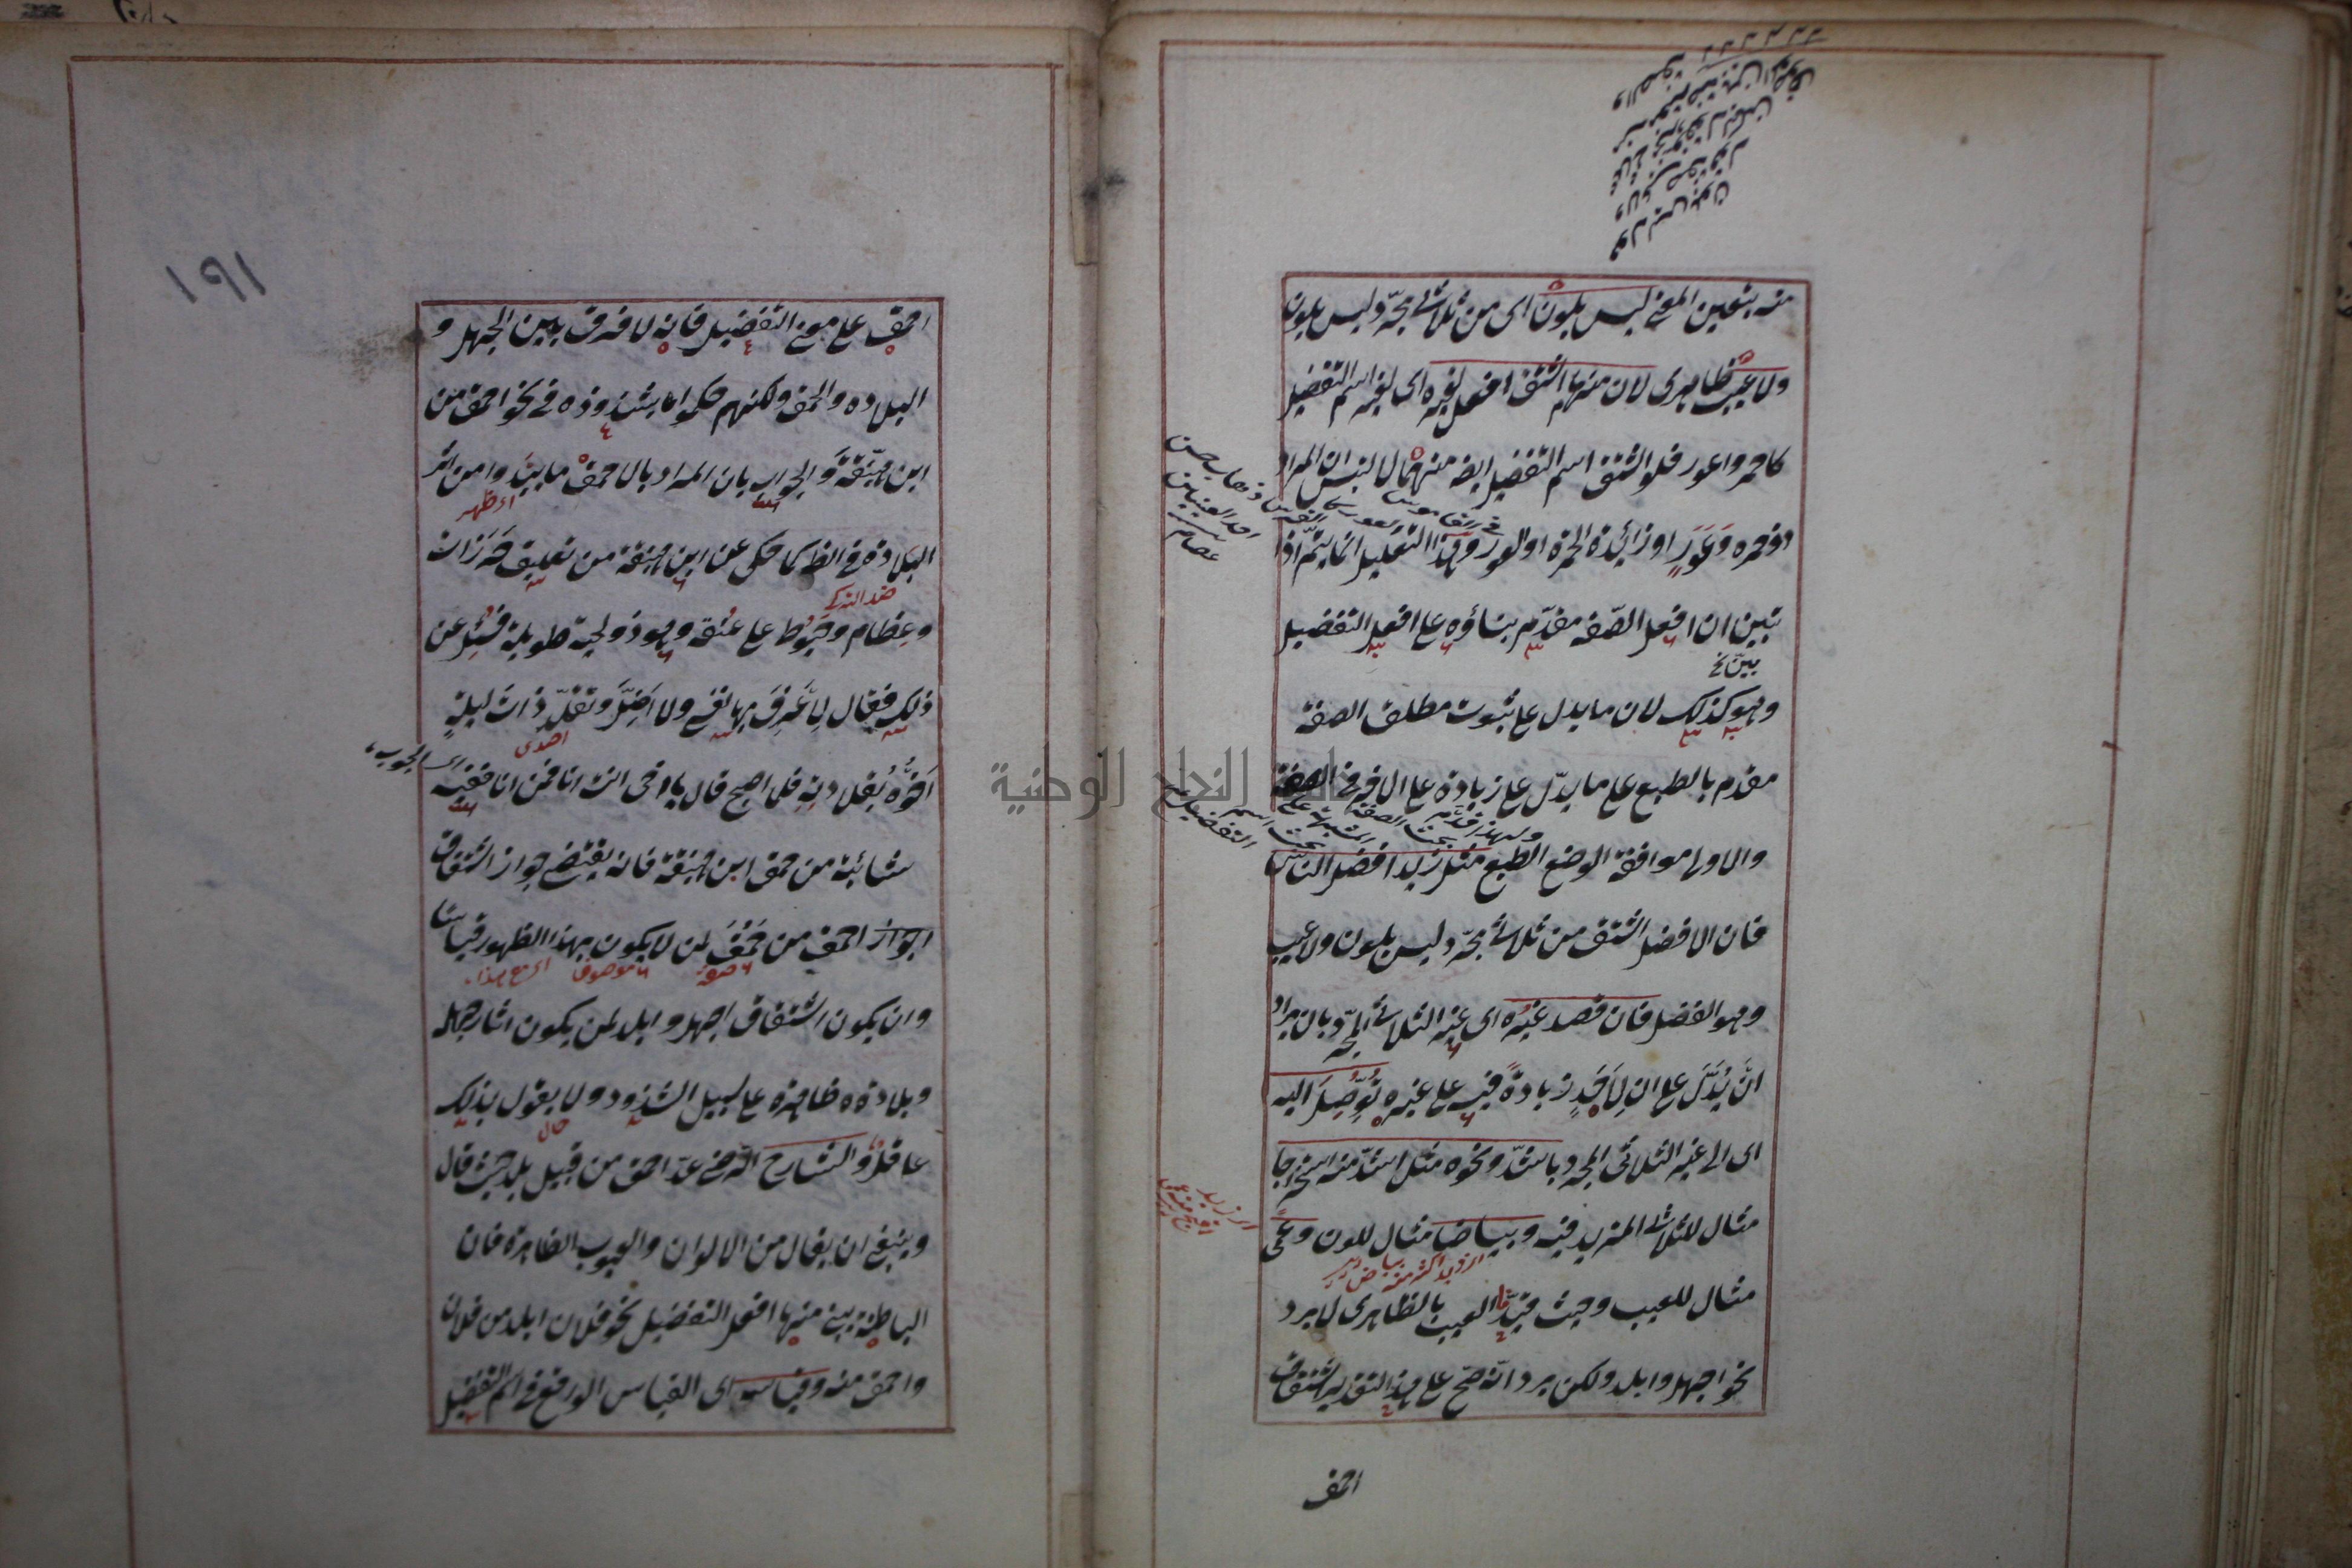 منه بتعين المعنى ليس بلون اى من ثلاثى مجرد ليس بلون
ولا عيب ظاهرى لان منهما اشتق افعل لغيره اى لغير اسم التفضيل
كاحمر واعور فلو اشتق اسم التفضيل ايضا منهما لالتبس ان المراد
ذو حمرة وعور او زائد فى الحمرة او العور وهذا التعليل انما يتم اذا
تبين ان افعل الصفة مقدم بناؤه على افعل التفضيل
بين خ
وهو كذلك لان ما يدل على ثبوت مطلق الصفة
مقدم بالطبع على ما يدل على زيادة على الاخر فى الصفة
والاولى موافقة الوضع الطبع مثل زيد افضل الناس
فان الافضل اشتق من ثلاثى مجرد ليس بلون ولا عيب
وهو الفضل فان قصد غيره اى غير الثلاثى المجرد بان يراد
ان يدل على ان لاحد زيادة فيه على غيره توصل اليه
اى الى غير الثلاثى المجرد باشد ونحوه مثل اشد منه استخراجا
مثال للثلاثى المزيد فيه وبياضا مثال للون وعمى
مثال للعيب وحيث قيدنا العيب بالظاهرى لا يرد
نحو اجهل وابلد ولكن يرد انه صح على هذا التقدير اشتقاق
احمق
فى القاموس العور ذهاب حس احد العينين
عصام
ولهذا قدم بحث الصفة المشبهة على بحث اسم التفضيل
١٩١
احمق على معنى التفضيل فانه لا فرق بين الجهل و
البلادة والحمق ولكنهم حكموا بشذوذه فى نحو احمق من
ابن هبنقة والجواب بان المراد بالاحمق ما يبدوا من اثر
اى ظهر
البلادة فى الظ كما حكى عن ابن هبنقة من تعليق خرزات
وعظام وخيوط على عنقه وهو ذو لحية طويلة فسئل عن
ذلك فقال لاعرف بها نفسى ولا اضل وتقلد ذات ليلة
احدى
اى الجواب
اخوه بقلادته فلما اصبح قال يا اخى انت انا فمن انا ففيه
شائبة من حمق ابن هبنقة فانه يقتضى جواز اشتقاق
احمق من حمق لمن لا يكون بهذا الظهور قياسا
صفة
موصوف
وان يكون اشتقاق اجهل وابلد لمن يكون اثار جهله
وبلادته ظاهرة على سبيل الشذوذ ولا يقول بذلك
حال
عاقل والشارح الرضى عد احمق من قبيل بلد حيث قال
وينبغى ان يقال من الالوان والعيوب الظاهرة فان
الباطنة يبنى منها افعل التفضيل نحو فلان ابلد من فلان
واحمق منه وقياسه اى القياس الواقع فى اسم التفضيل